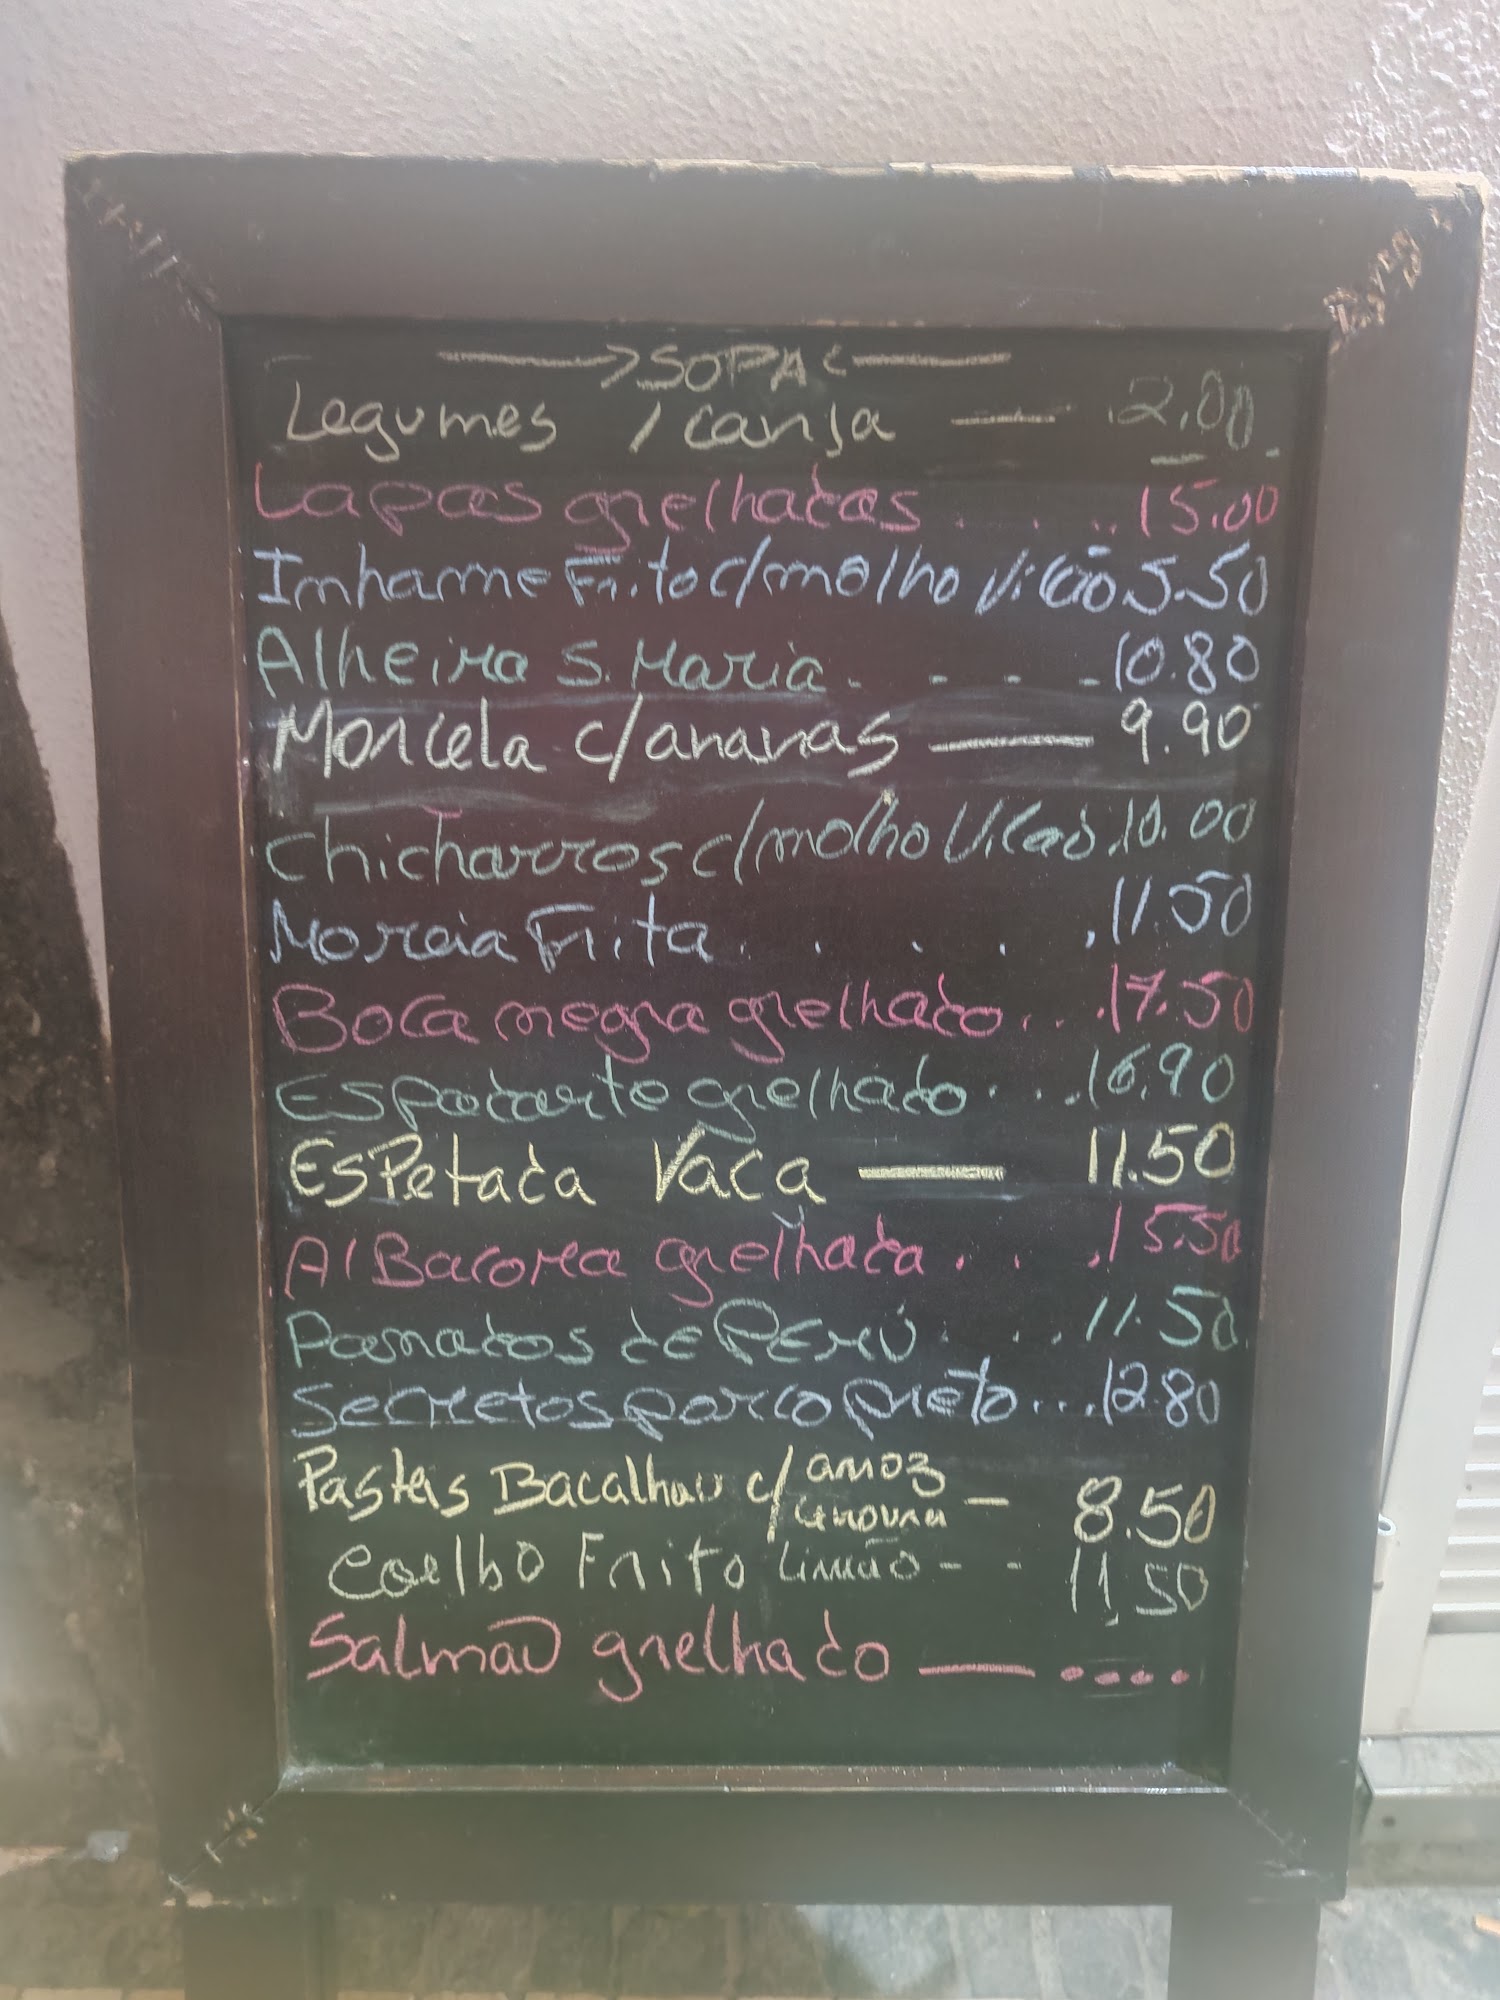 SOPA
Legumes / canja — 2.00
Lapas grelhadas . . . . 15.00
Inhame Frito c/molho Vilão 5.50
Alheira S. Maria . - - - - 10.80
Morcela c/ananas — 9.90
Chicharros c/molho Vilão . 10.00
Moreia Frita . . . . . 11.50
Boca negra grelhado . . . . 17.50
Espadarte grelhado . . . . 16.90
Espetada Vaca — 11.50
AlBacora grelhada . . . 15.50
Panados de Perú . . . . 11.50
Secretos porco preto . . . 12.80
Pasteis Bacalhau c/ arroz
cenoura — 8.50
Coelho Frito Limão - - 11.50
Salmão grelhado — . . . .